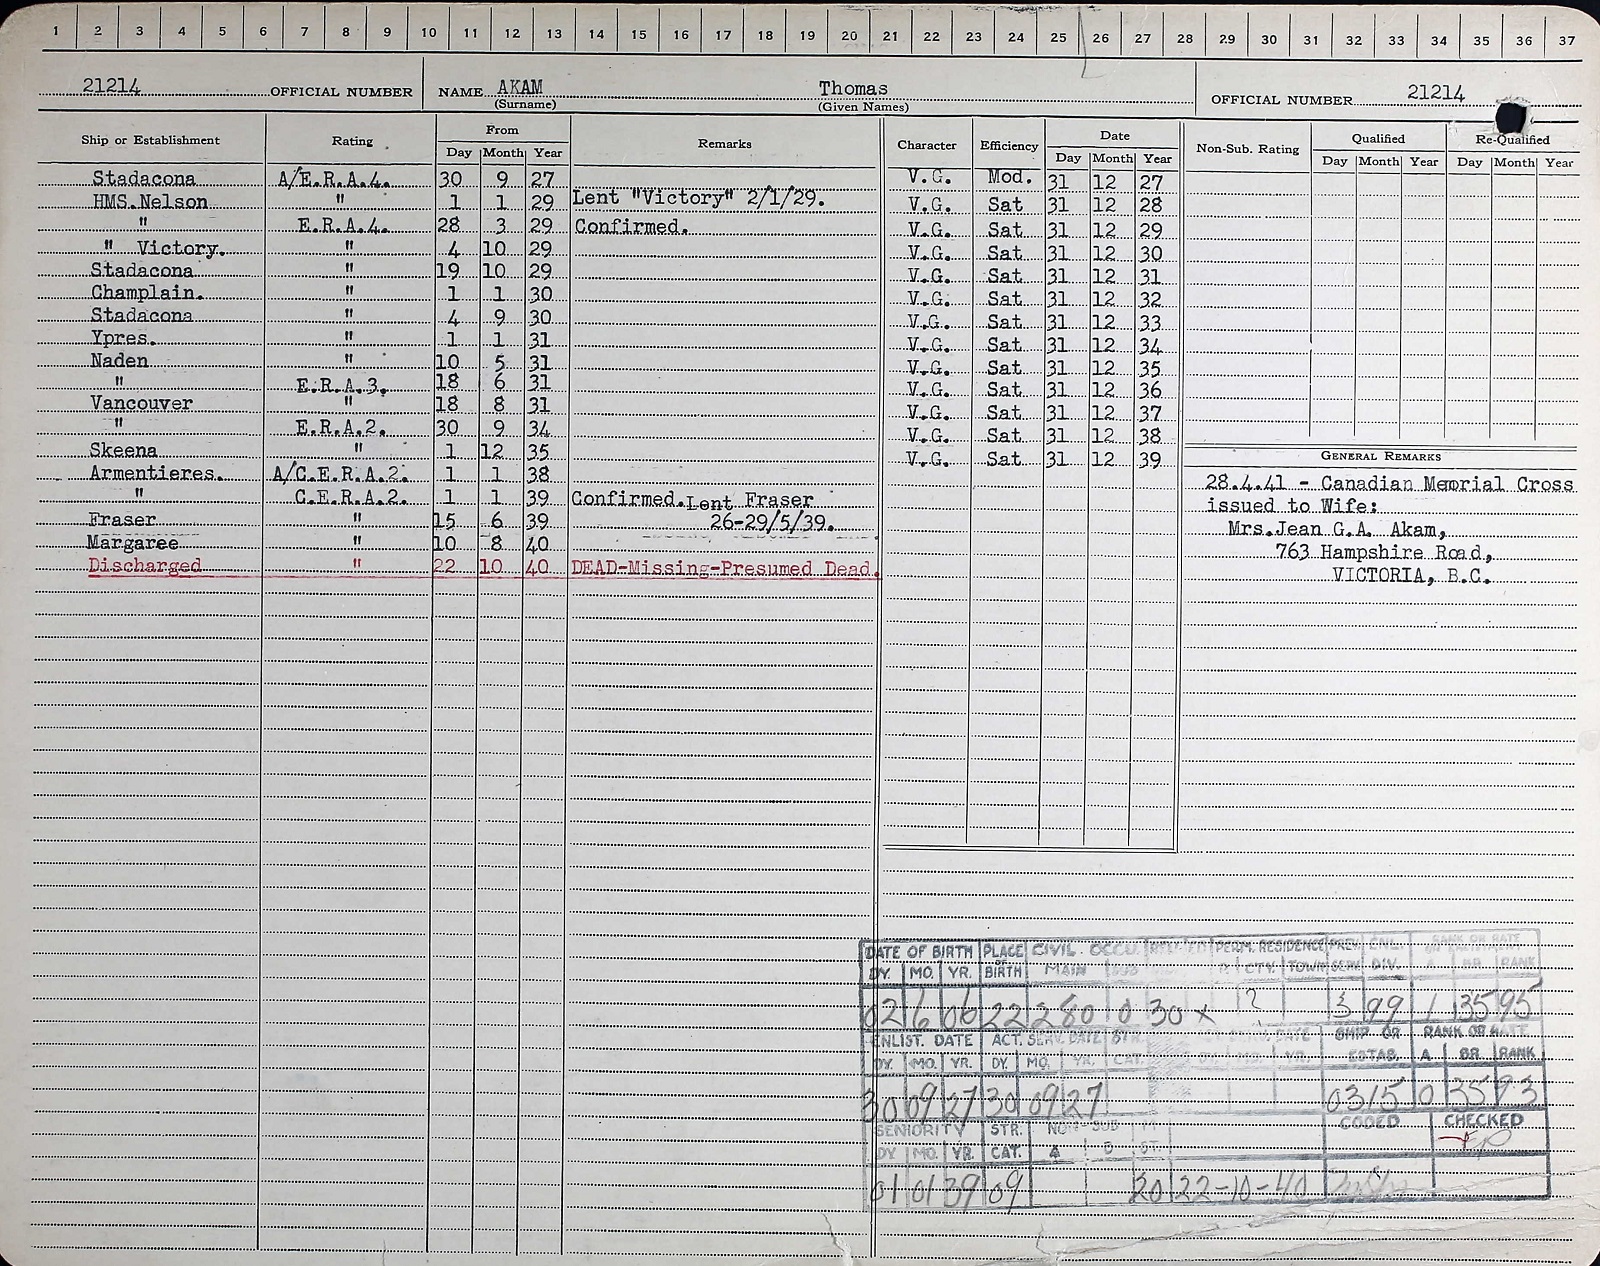 1 2 3 4 5 6 7 8 9 10 11 12 13 14 15 16 17 18 19 20 21 22 23 24 25 26 27 28 29 30 31 32 33 34 35 36 37
21214 OFFICIAL NUMBER NAME AKAM Thomas OFFICIAL NUMBER 21214
(Surname) (Given Names)
Ship or Establishment Rating From Remarks Character Efficiency Date Non-Sub. Rating Qualified Re-Qualified
Day Month Year Day Month Year Day Month Year Day Month Year
Stadacona A/E.R.A.4. 30 9 27 V.G. Mod. 31 12 27
HMS.Nelson " 1 1 29 Lent "Victory" 2/1/29. V.G. Sat 31 12 28
" E.R.A.4. 28 3 29 Confirmed. V.G. Sat 31 12 29
" Victory. " 4 10 29 V.G. Sat 31 12 30
Stadacona " 19 10 29 V.G. Sat 31 12 31
Champlain. " 1 1 30 V.G. Sat 31 12 32
Stadacona " 4 9 30 V.G. Sat 31 12 33
Ypres. " 1 1 31 V.G. Sat 31 12 34
Naden " 10 5 31 V.G. Sat 31 12 35
" E.R.A.3. 18 6 31 V.G. Sat 31 12 36
Vancouver " 18 8 31 V.G. Sat 31 12 37
" E.R.A.2. 30 9 34 V.G. Sat 31 12 38
Skeena " 1 12 35 V.G. Sat 31 12 39
Armentieres. A/C.E.R.A.2. 1 1 38
" C.E.R.A.2. 1 1 39 Confirmed. Lent Fraser
Fraser " 15 6 39 26-29/5/39.
Margaree " 10 8 40
Discharged " 22 10 40 DEAD-Missing-Presumed Dead.
GENERAL REMARKS
28.4.41 - Canadian Memrial Cross
issued to Wife:
Mrs.Jean G.A. Akam,
763 Hampshire Road,
VICTORIA, B.C.
DATE OF BIRTH PLACE OF BIRTH CIVIL OCCU. PERM. RESIDENCE PREV. SERV. ENL. DIV. RANK OR RATE
DY. MO. YR. MAIN CTY. TOWN A BR. RANK
02 6 06 22 280 0 30 x ? 3 99 1 35 95
ENLIST. DATE ACT. SERV. DATE STR. DATE SHIP OR ESTAB. RANK OR RATE
DY. MO. YR. DY. MO. YR. CAT. A BR. RANK
30 09 27 30 09 27 0315 0 35 93
SENIORITY STR. NON-SUB CODED CHECKED
DY MO. YR. CAT. A B ST.
01 01 39 09 20 22-10-40